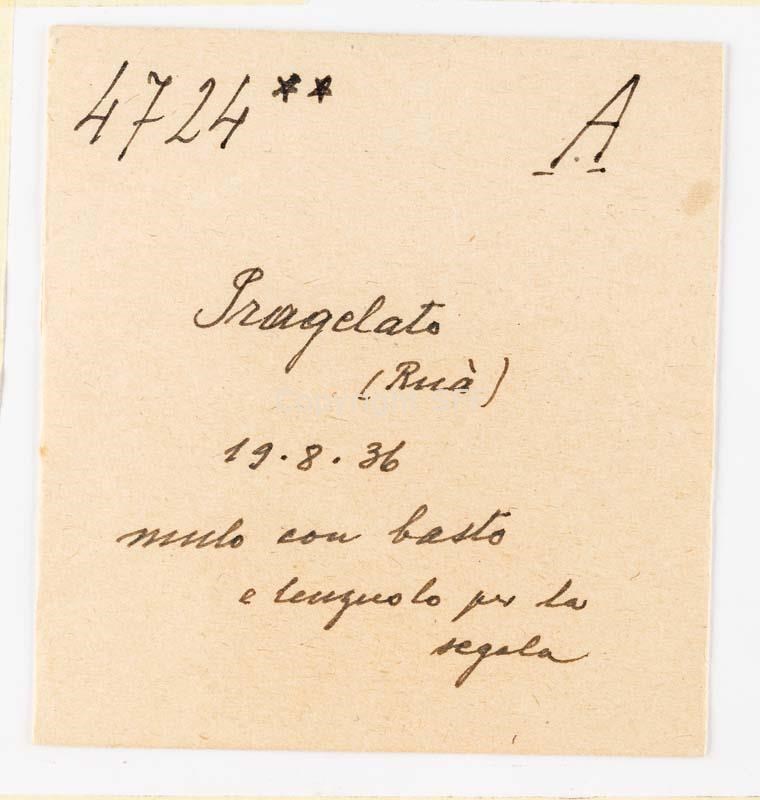 4724** A
Pragelato
(Ruà)
19.8.36
mulo con basto
e lenzuolo per la
segala